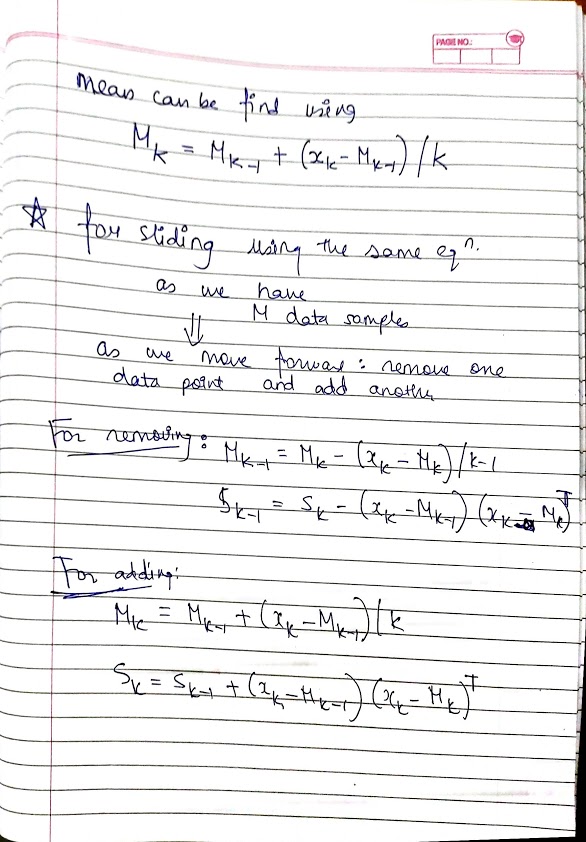 PAGE NO.:
Mean can be find using
M_k = M_{k-1} + (x_k - M_{k-1}) / k
☆ for sliding using the same eqⁿ.
as we have
M data samples
⇓
as we move forward : remove one
data point and add another
For removing : M_{k-1} = M_k - (x_k - M_k) / k-1
S_{k-1} = S_k - (x_k - M_{k-1}) (x_k - M_k)^T
For adding :
M_k = M_{k-1} + (x_k - M_{k-1}) / k
S_k = S_{k-1} + (x_k - M_{k-1}) (x_k - M_k)^T